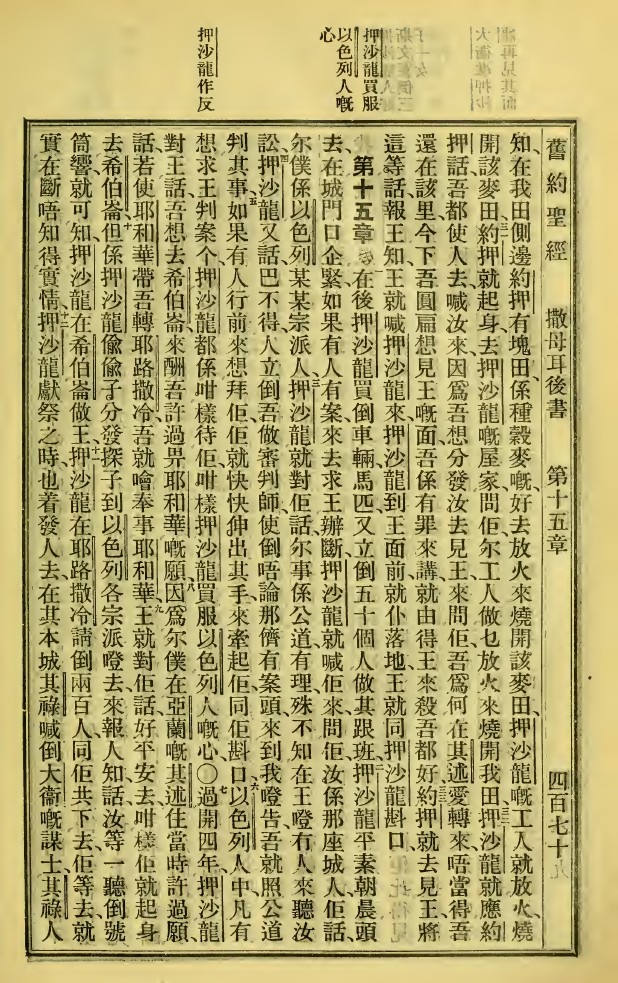 押沙龍買服
以色列人嘅
心
押沙龍作反
舊約聖經 撒母耳後書 第十五章 四百七十九
知在我田側邊約押有塊田係種穀麥嘅好去放火來燒開該麥田押沙龍嘅工人就放火燒
開該麥田約押就起身去押沙龍嘅屋家問佢尔工人做乜放火來燒開我田押沙龍就應約
押話吾都使人去喊汝來因爲吾想分發汝去見王來問佢吾爲何在其述愛轉來唔當得吾
還在該里今下吾圓扁想見王嘅面吾係有罪來講就由得王來殺吾都好約押就去見王將
這等話報王知王就喊押沙龍來押沙龍到王面前就仆落地王就同押沙龍斟口
第十五章 在後押沙龍買倒車輛馬匹又立倒五十個人做其跟班押沙龍平案朝晨頭
去在城門口企緊如果有人有案來去求王辦斷押沙龍就喊佢來問佢汝係那座城人佢話
尔僕係以色列某某宗派人押沙龍就對佢話尔事係公道有理殊不知在王噔有人來聽汝
訟押沙龍又話巴不得人立倒吾做審判師使倒唔論那儕有案頭來到我噔告吾就照公道
判其事如果有人行前來想拜佢佢就快快伸出其手來牽起佢同佢斟口以色列人中凡有
想求王判案个押沙龍都係咁樣待佢咁樣押沙龍買服以色列人嘅心〇過開四年押沙龍
對王話吾想去希伯崙來酬吾許過畀耶和華嘅願因爲尔僕在亞蘭嘅其述住當時許過願
話若使耶和華帶吾轉耶路撒冷吾就噲奉事耶和華王就對佢話好平安去咁樣佢就起身
去希伯崙但係押沙龍偸偸子分發探子到以色列各宗派噔去來報人知話汝等一聽倒號
筒響就可知押沙龍在希伯崙做王押沙龍在耶路撒冷請倒兩百人同佢共下去佢等去就
實在斷唔知得實情押沙龍獻祭之時也着發人去在其本城其祿喊倒大衞嘅謀士其祿人